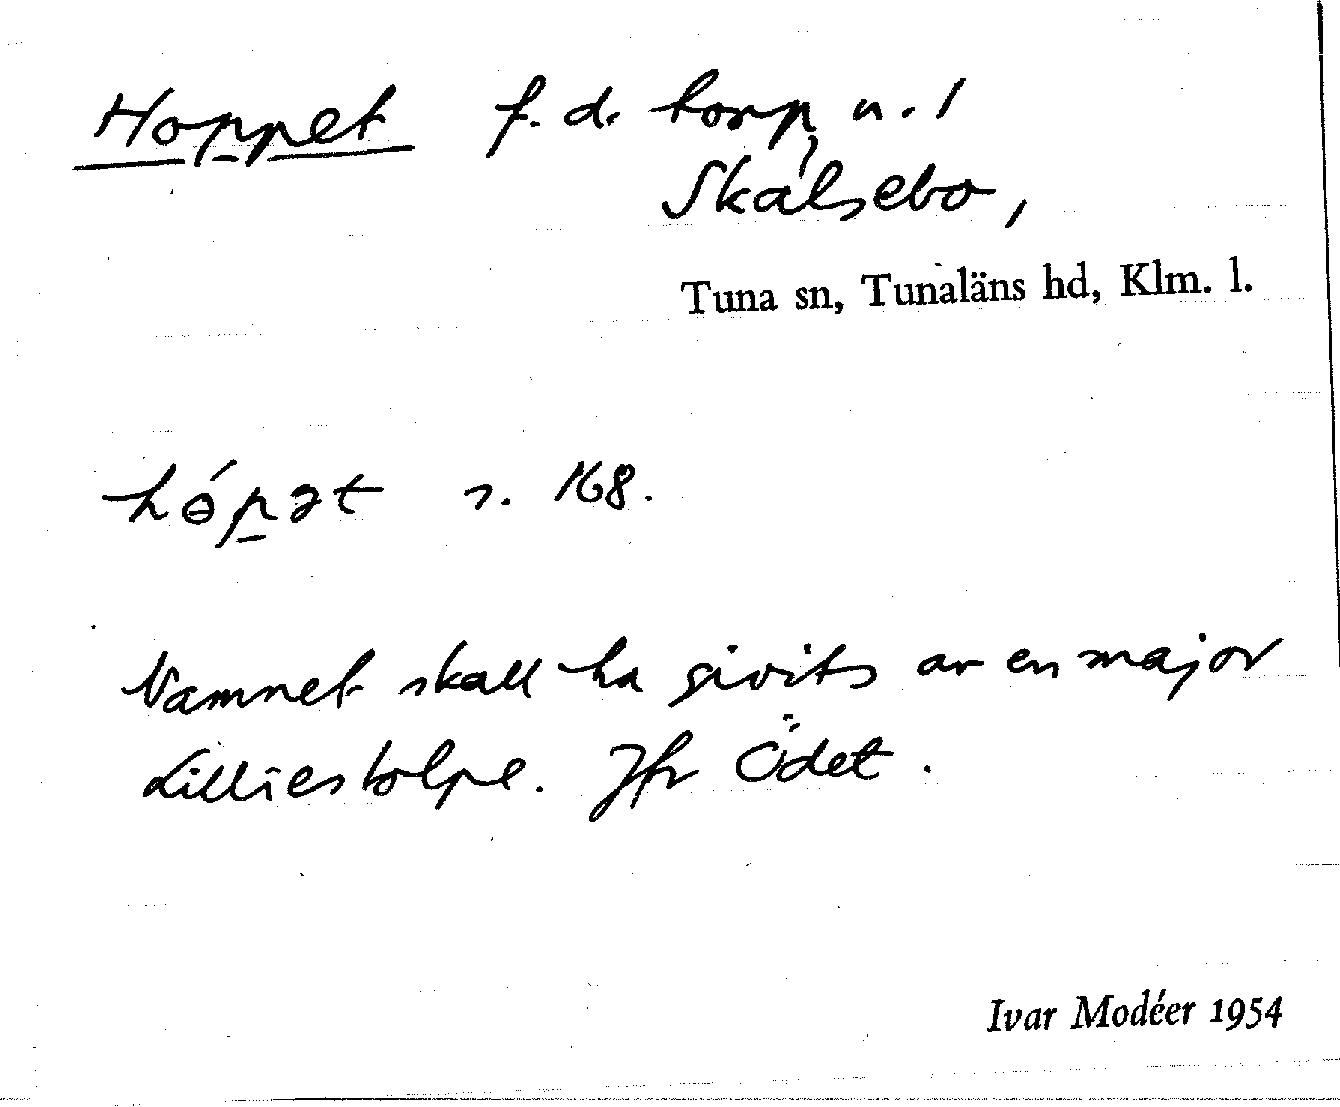 Hoppet f.d. torp, u. 1
Skälsebo,
Tuna sn, Tunaläns hd, Klm. l.
hɵ́pət s. 168.
Namnet skall ha givits av en major
Lilliestolpe. Jfr Ödet.
Ivar Modéer 1954